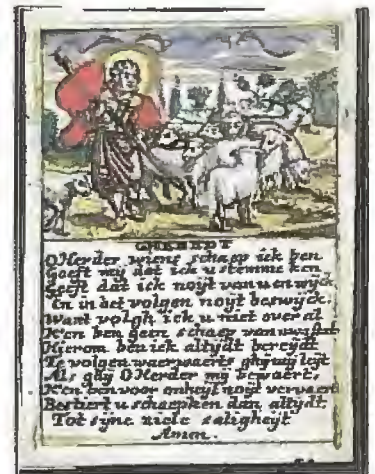 GHEBEDT
O Herder wiens schaep ick ben
Geeft my dat ick u stemme ken
Geeft dat ick noÿt van u en wÿck
En in het volgen noÿt beswÿck.
Want volgh ick u niet over al
K'en ben geen schaep van uwen stal
Hierom ben ick altÿdt bereÿdt
Te volgen waerwaerts ghÿ mÿ leÿt
Als ghÿ O Herder mÿ bewaert.
K'en ben voor onheÿl noÿt vervaert
Bestiert u schaepken dan altÿdt,
Tot sÿne ziele saligheÿt
Amen.